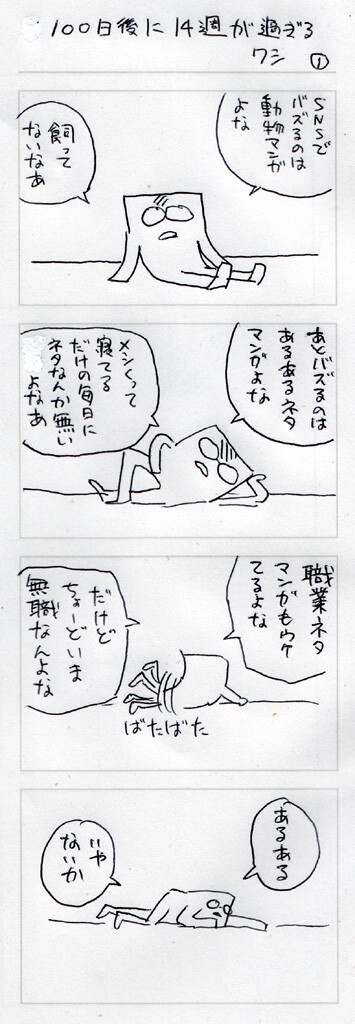 100日後に14週が過ぎる
ワシ ①
SNSで
バズるのは
動物マンガ
よな
飼って
ないなあ
あとバズるのは
あるあるネタ
マンガよな
メシくって
寝てる
だけの毎日に
ネタなんか無い
よなあ
職業ネタ
マンガもウケ
てるよな
だけど
ちょーどいま
無職なんよな
ばたばた
あるある
いや
ないか